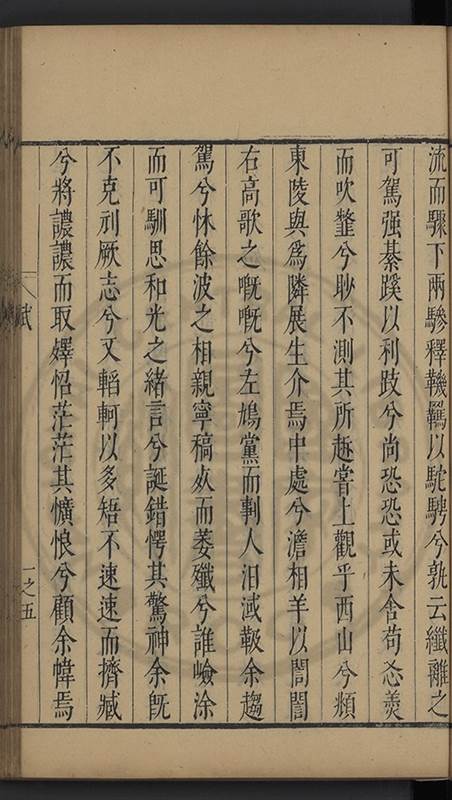 流而驟下兩驂釋鞿羈以駝騁兮孰云纖離之
可駕强綦蹊以利跂兮尚恐恐或未舍苟忞羮
而吹韲兮眇不測其所趂甞上觀乎西山兮頫
東陵與爲隣展生介焉中處兮澹相羊以誾誾
右高歌之嘅嘅兮左鳩黨而剚人汨減馺余趨
駕兮怵餘波之相親寧稿㚈而萎殲兮誰嶮涂
而可馴思和光之緒言兮誕錯愕其驚神余旣
不克刓厥志兮又轁軻以多㛿不速速而擠臧
兮將譨譨而取嬕怊茫茫其懭悢兮顧余幃焉
賦
一之五